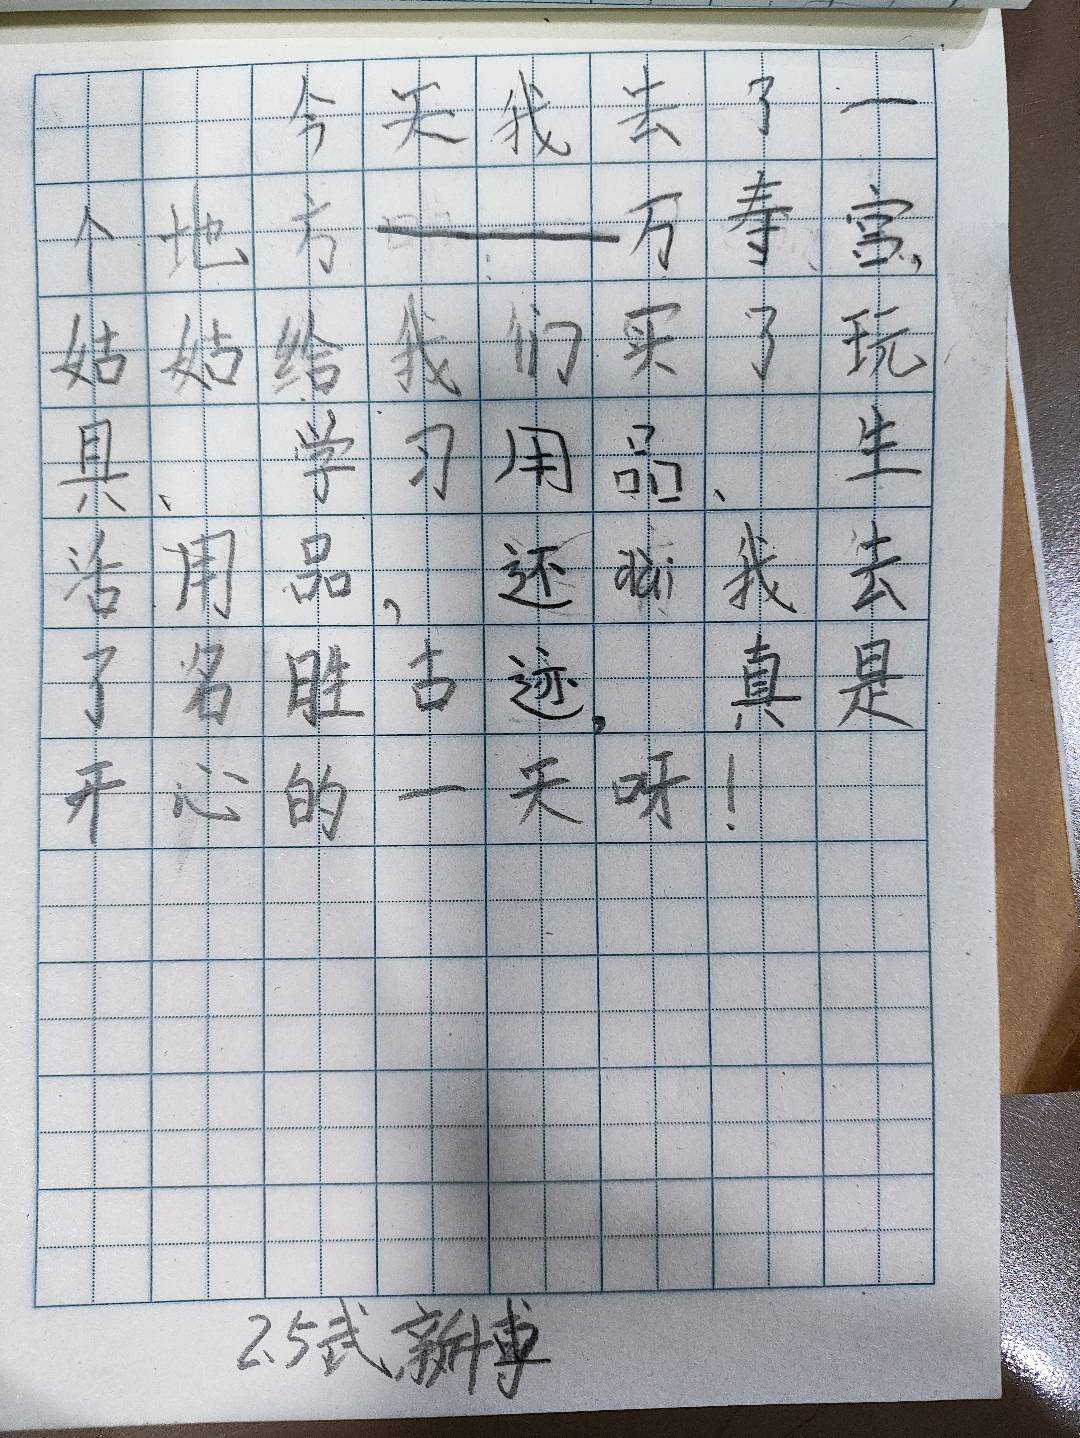 今天我去了一
个地方——万寿宫，
姑姑给我们买了玩
具、学习用品、生
活用品，还dai我去
了名胜古迹，真是
开心的一天呀！
2.5武新博